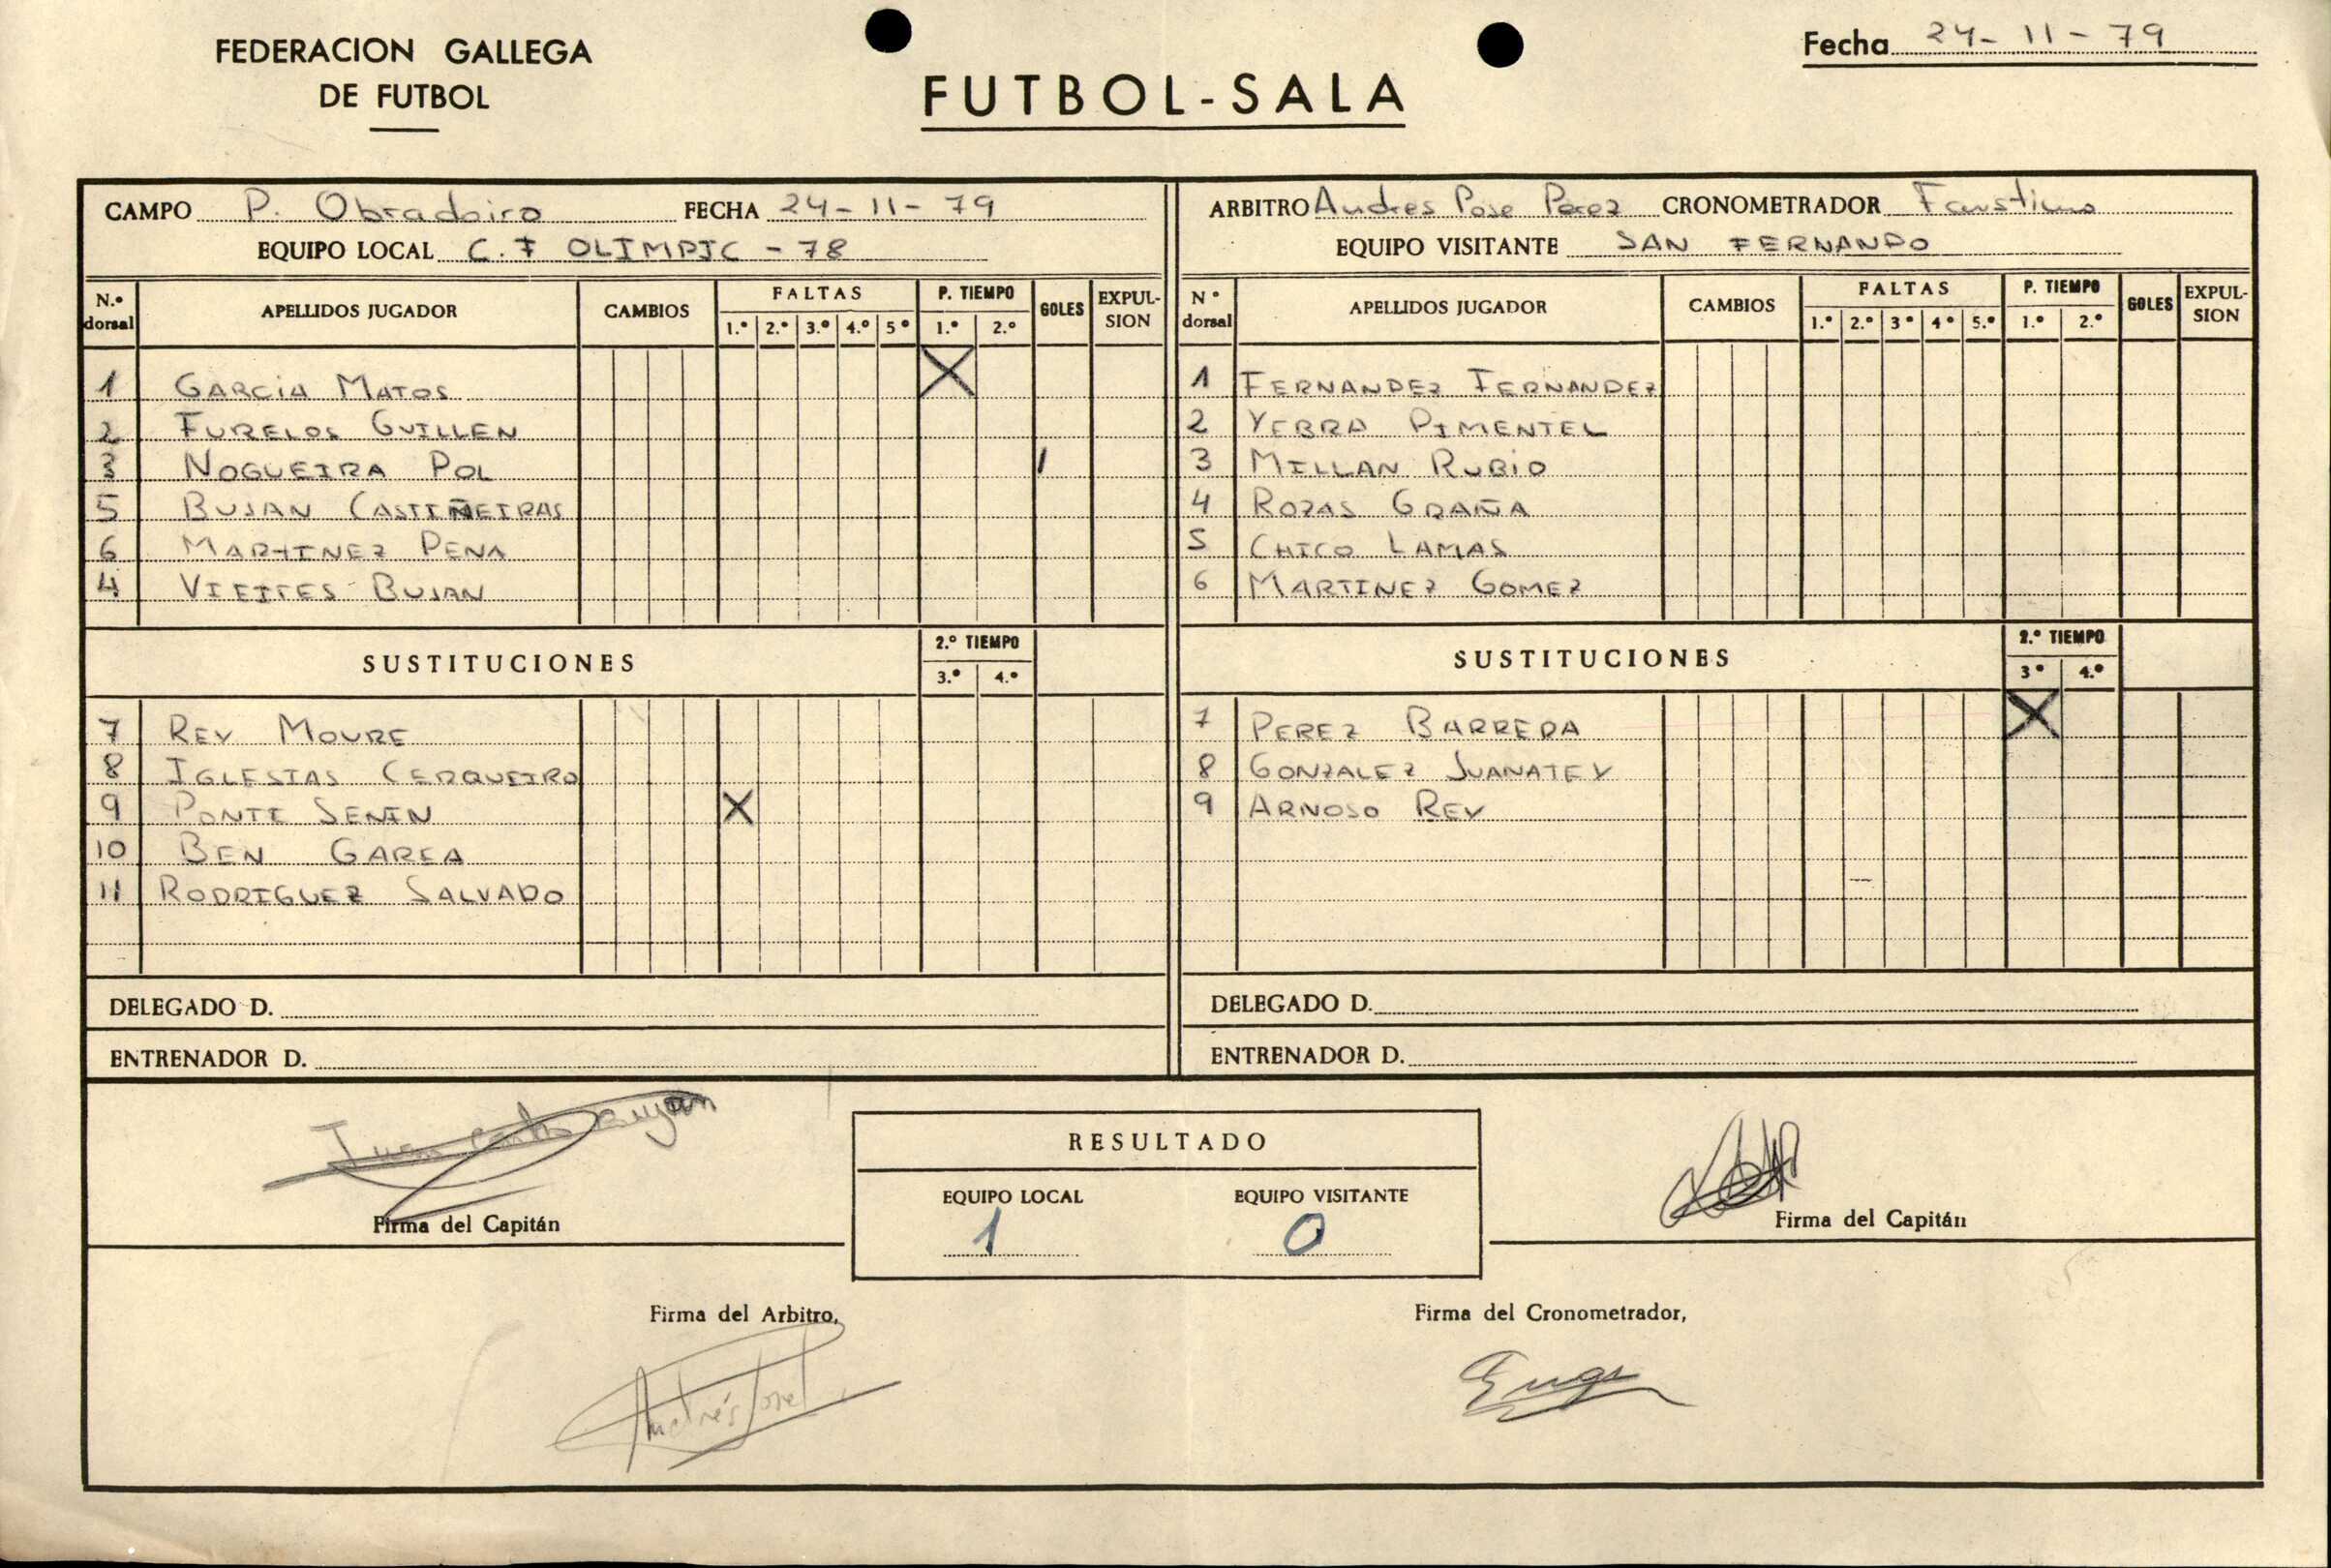 FEDERACION GALLEGA
DE FUTBOL
FUTBOL-SALA
Fecha 24-11-79
CAMPO P. Obradoiro FECHA 24-11-79
EQUIPO LOCAL C.F OLIMPIC-78
N.º dorsal APELLIDOS JUGADOR CAMBIOS FALTAS P. TIEMPO GOLES EXPULSION
1.º 2.º 3.º 4.º 5º 1.º 2.º
1 GARCIA MATOS X
2 FURELOS GUILLEN
3 NOGUEIRA POL 1
5 BUJAN CASTIÑEIRAS
6 MARTINEZ PENA
4 VIEITES BUJAN
SUSTITUCIONES 2.º TIEMPO
3.º 4.º
7 REY MOURE
8 IGLESIAS CERQUEIRO
9 PONTE SENIN X
10 BEN GAREA
11 RODRIGUEZ SALVADO
DELEGADO D.
ENTRENADOR D.
ARBITRO Andres Pose Perez CRONOMETRADOR Faustino
EQUIPO VISITANTE SAN FERNANDO
Nº dorsal APELLIDOS JUGADOR CAMBIOS FALTAS P. TIEMPO GOLES EXPULSION
1.º 2.º 3º 4º 5.º 1.º 2.º
1 FERNANDEZ FERNANDEZ
2 YEBRA PIMENTEL
3 MILLAN RUBIO
4 ROZAS GRAÑA
5 CHICO LAMAS
6 MARTINEZ GOMEZ
SUSTITUCIONES 2.º TIEMPO
3º 4.º
7 PEREZ BARREDA X
8 GONZALEZ JUANATEY
9 ARNOSO REY
DELEGADO D.
ENTRENADOR D.
Firma del Capitán
RESULTADO
EQUIPO LOCAL EQUIPO VISITANTE
1 0
Firma del Capitán
Firma del Arbitro,
Andrés Pose
Firma del Cronometrador,